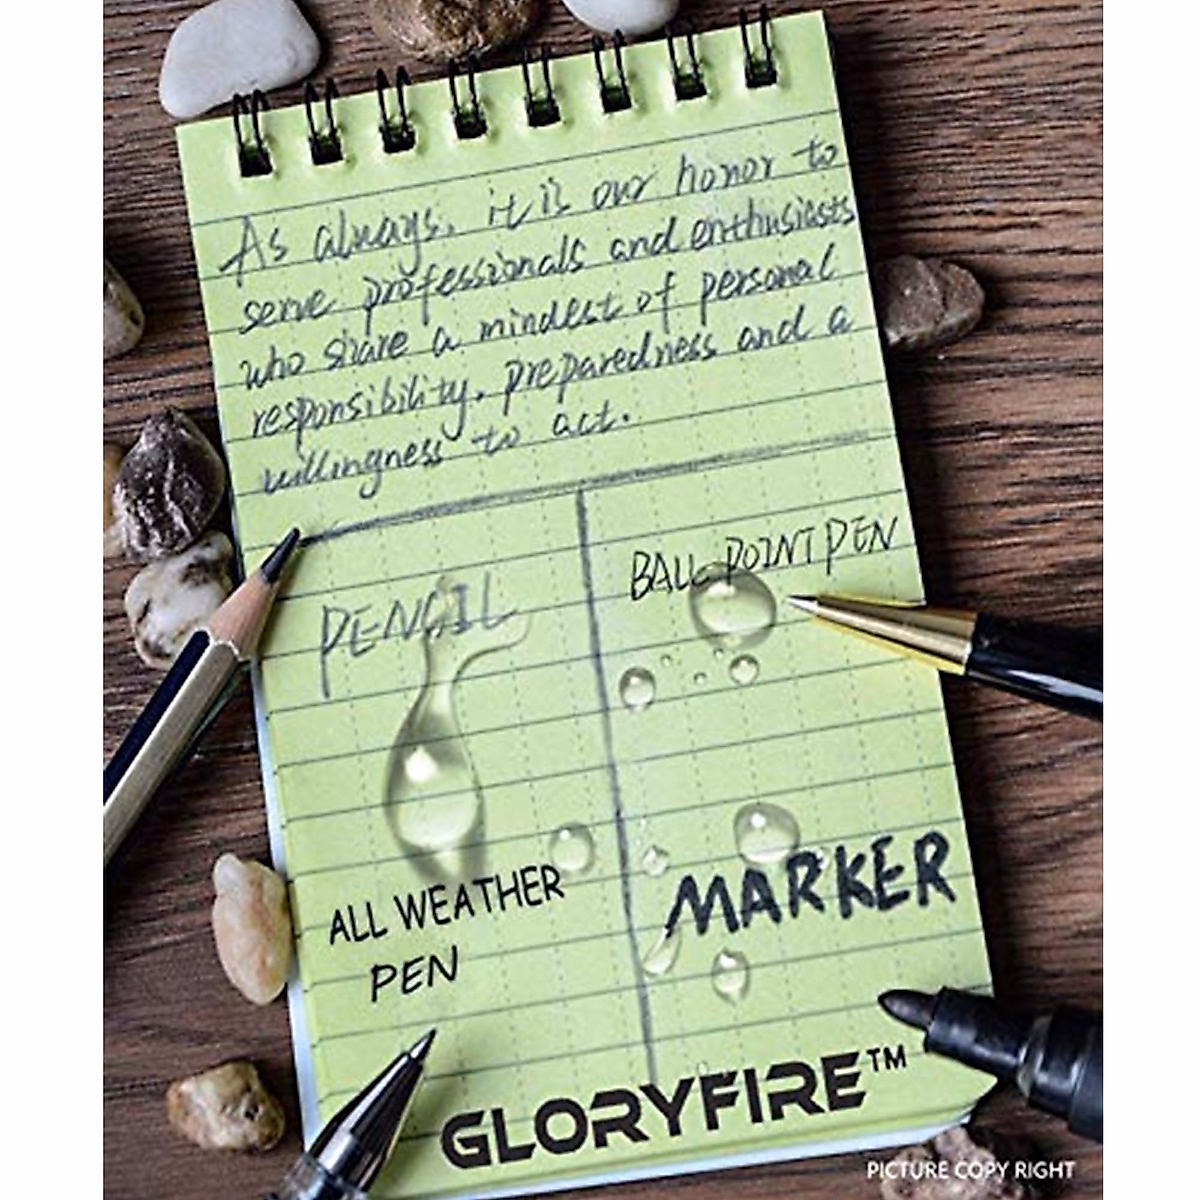 As always, it is our honor to
serve professionals and enthusiasts
who share a mindest of personal
responsibility. preparedness and a
willingness to act.
PENCIL
BALL POINT PEN
ALL WEATHER
PEN
MARKER
GLORYFIRE™
PICTURE COPY RIGHT